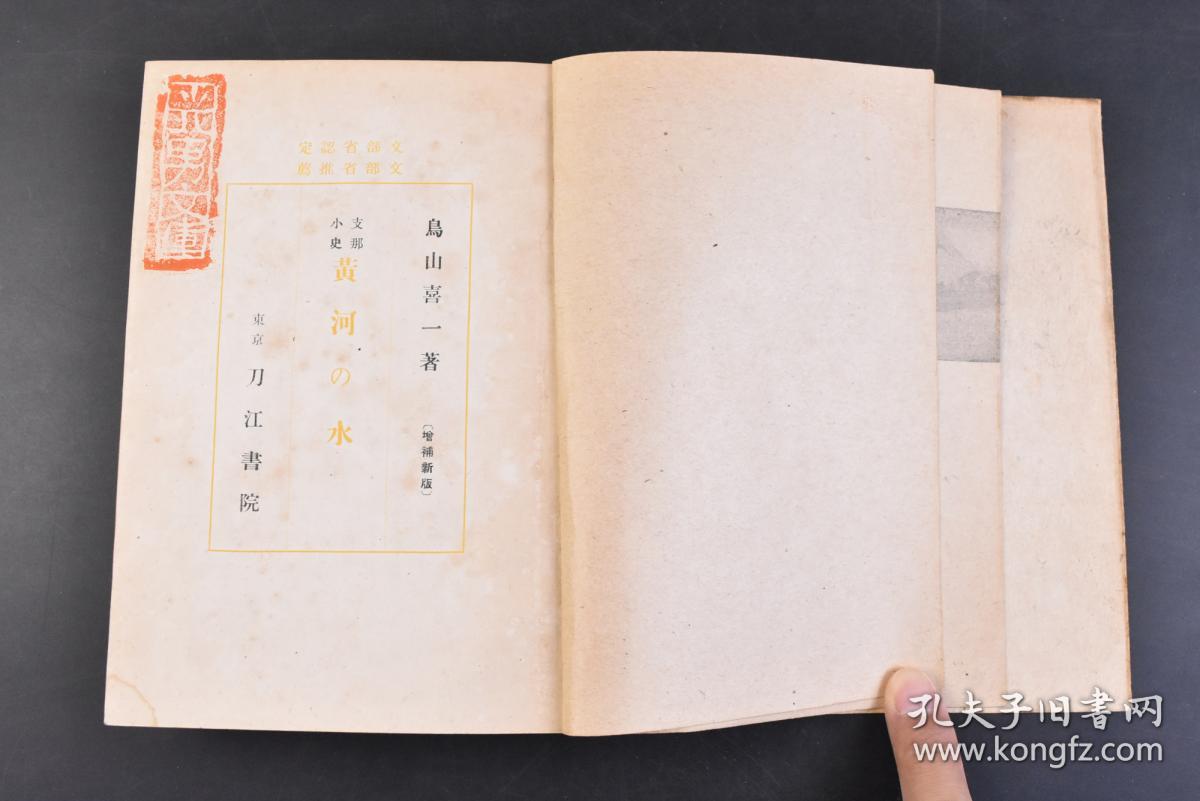 文部省認定
文部省推薦
鳥山喜一著
〔增補新版〕
支那
小史
黃河の水
東京
刀江書院
孔夫子旧书网
www.kongfz.com